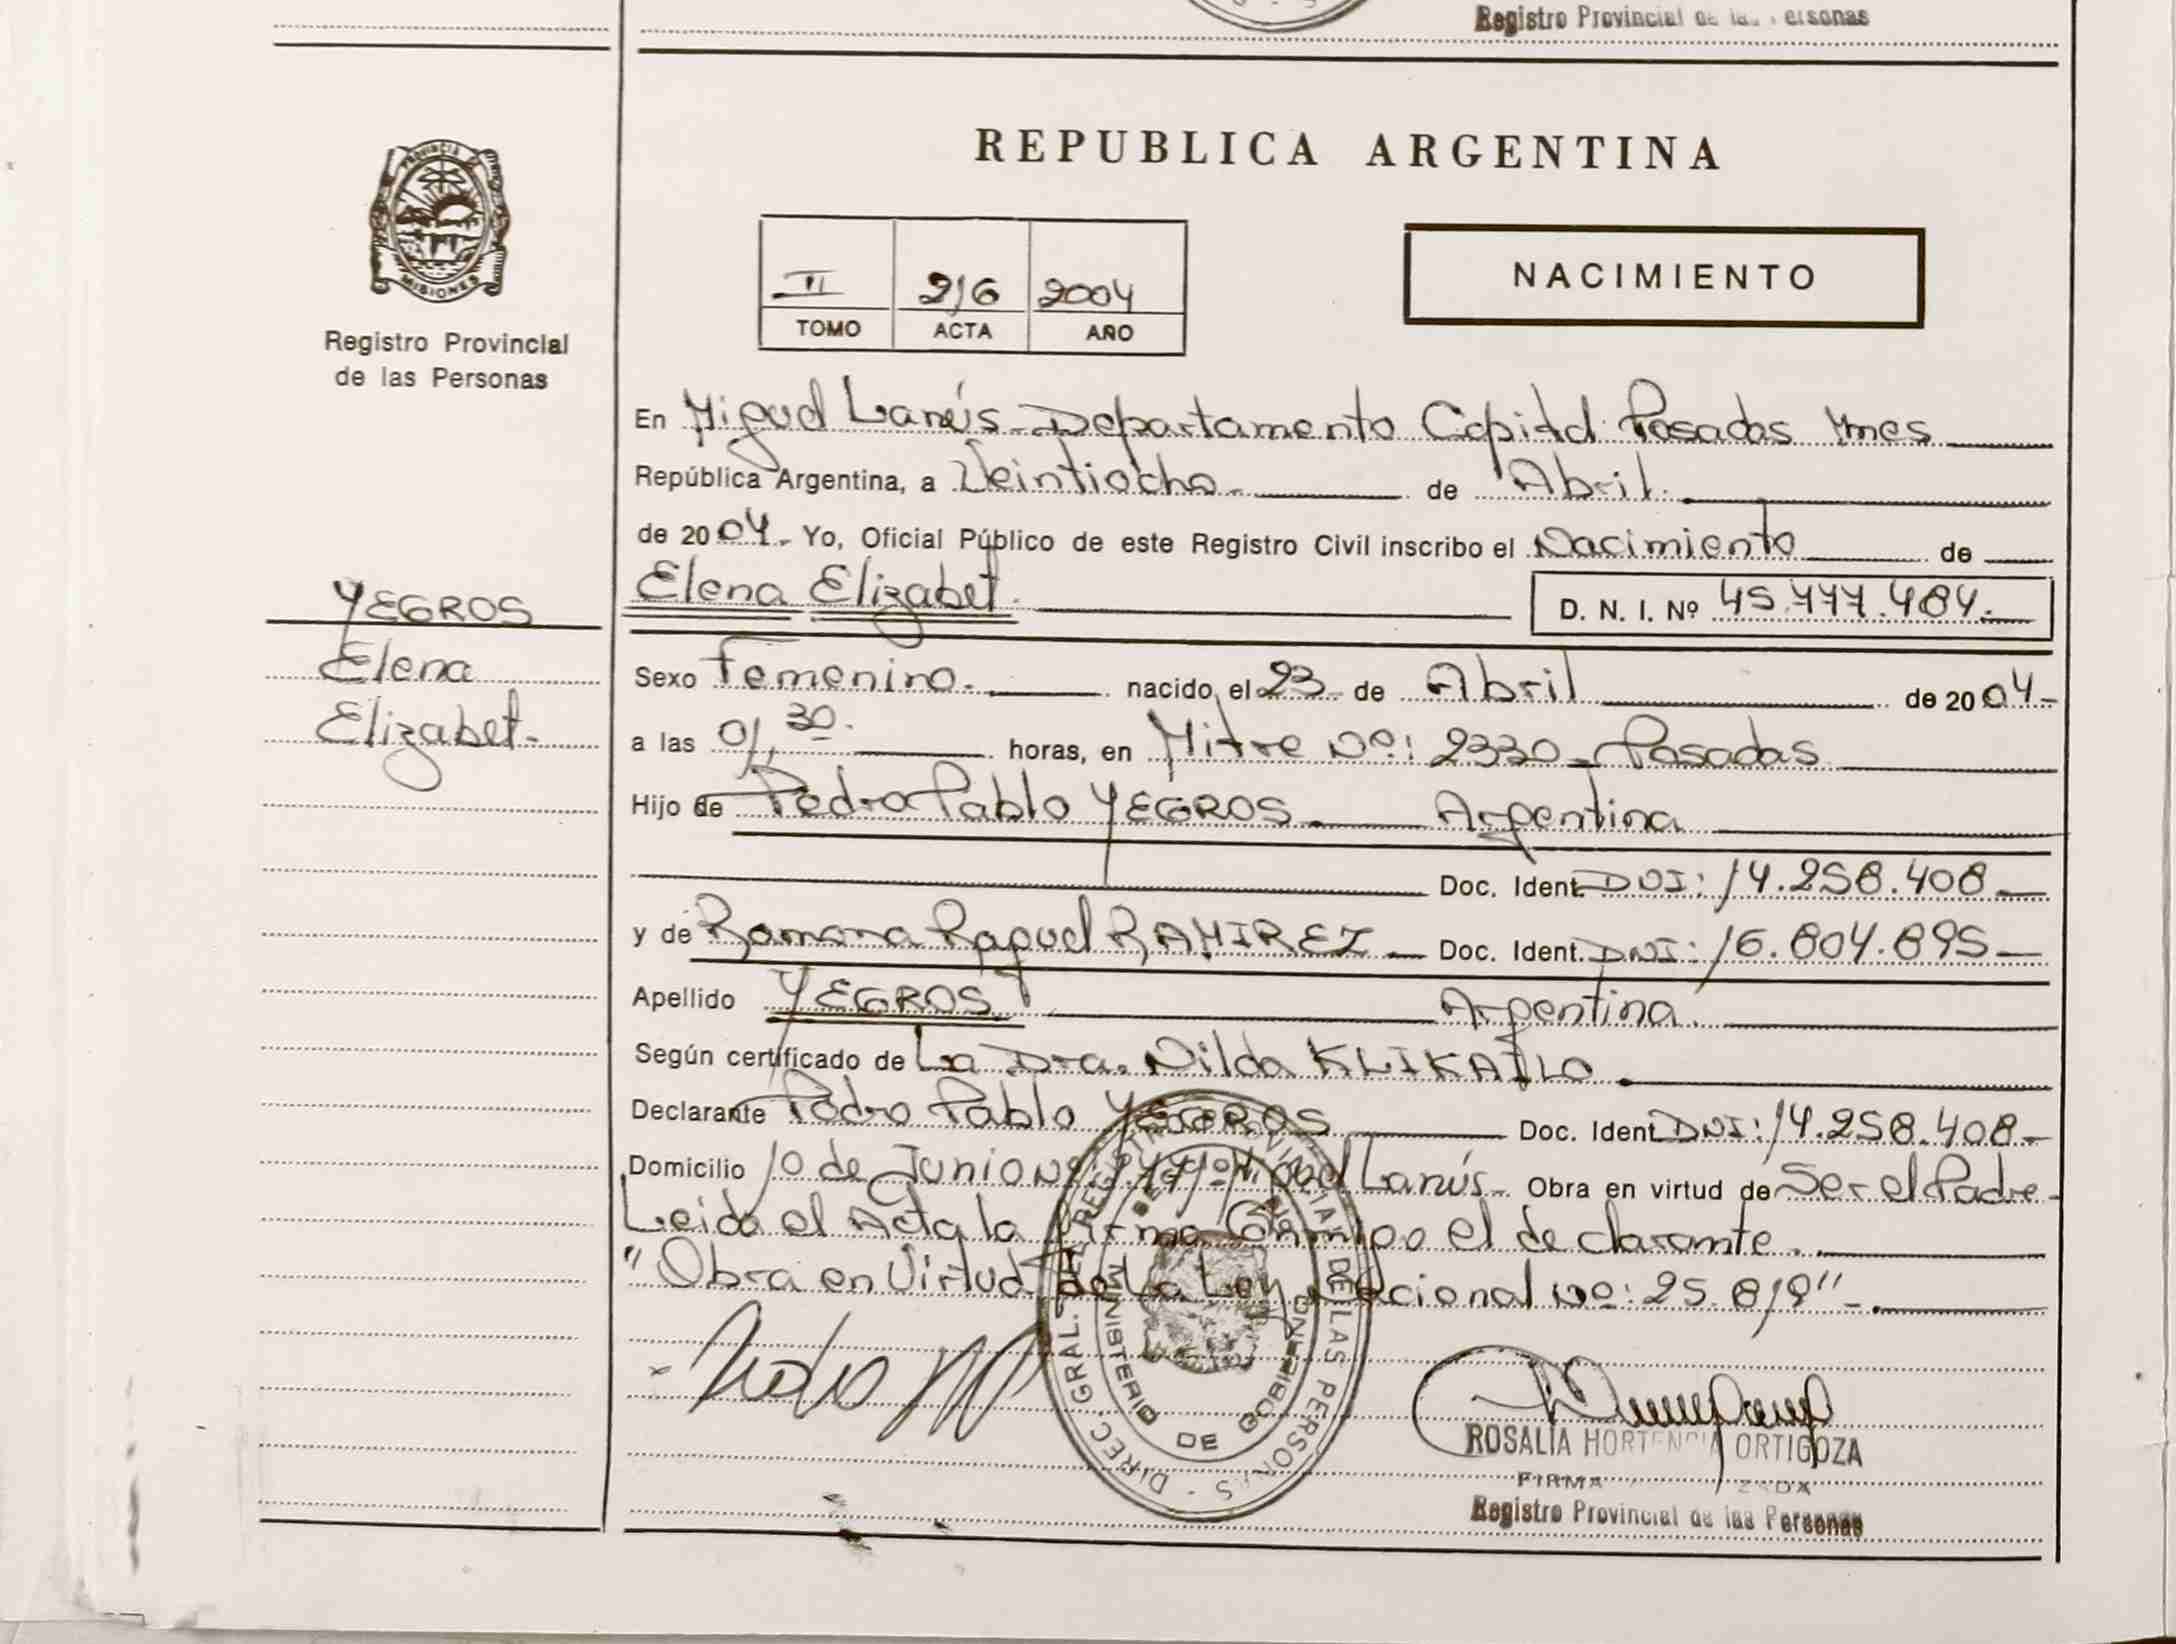 Registro Provincial de las Personas
REPUBLICA ARGENTINA
PROVINCIA DE
MISIONES
Registro Provincial
de las Personas
II 216 2004
TOMO ACTA AÑO
NACIMIENTO
En Miguel Lanús - Departamento Capital Posadas Mnes
República Argentina, a Veintiocho.- de Abril.
de 2004.- Yo, Oficial Público de este Registro Civil inscribo el Nacimiento de
Elena Elizabet. D. N. I. Nº 45.777.484.
YEGROS
Elena
Elizabet.-
Sexo Femenino. nacido el 23 de Abril de 2004-
a las 01,30. horas, en Mitre Nº: 2330 - Posadas
Hijo de Pedro Pablo YEGROS Argentina
Doc. Ident. DNI: 14.258.408
y de Ramona Raquel RAMIREZ Doc. Ident. DNI: 16.804.895
Apellido YEGROS Argentina.
Según certificado de La Dra. Nilda KLIKAILO
Declarante Pedro Pablo YEGROS Doc. Ident. DNI: 14.258.408-
Domicilio 10 de Junio Lanús- Obra en virtud de Ser el Padre-
Leida el Acta la firma Conmigo el declarante.
"Obra en Virtud de La Ley Nacional Nº: 25.819"-.
DIREC. GRAL. DEL REGISTRO PROVINCIAL DE LAS PERSONAS
MINISTERIO DE GOBIERNO
ROSALIA HORTENCIA ORTIGOZA
FIRMA
Registro Provincial de las Personas